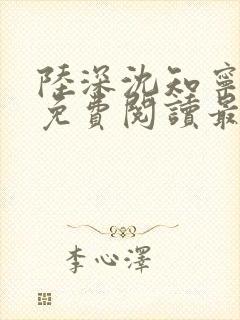 陸深沈知寧
免費閱讀最
李心澤